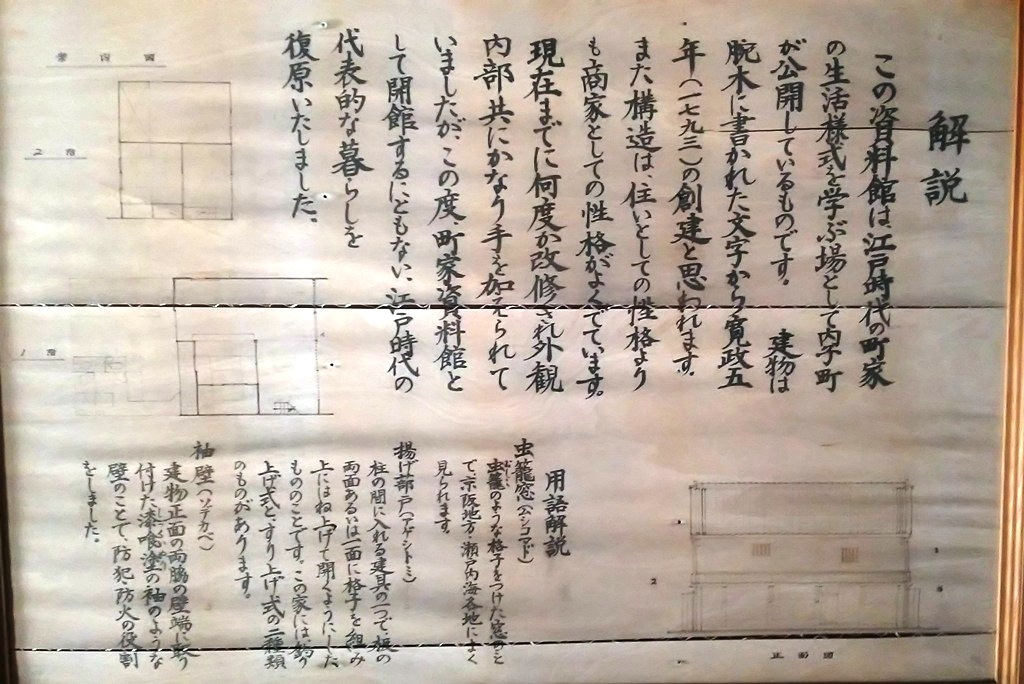 解説
この資料館は江戸時代の町家
の生活様式を学ぶ場として内子町
が公開しているものです。 建物は
腕木に書かれた文字から寛政五
年(一七九三)の創建と思われます。
また構造は、住いとしての性格より
も商家としての性格がよくでています。
現在までに何度か改修され外観
内部共にかなり手を加えられて
いましたが、この度町家資料館と
して開館するにともない、江戸時代の
代表的な暮らしを
復原いたしました。
用語解説
虫籠窓(ムシコマド)
虫籠のような格子をつけた窓のこと
で、京阪地方・瀬戸内海各地によく
見られます。
揚げ蔀戸(アゲシトミ)
柱の間に入れる建具の一つで板の
両面あるいは一面に格子を組み
上にはね上げて開くようにした
もののことです。この家には、釣り
上げ式と、すり上げ式の二種類
のものがあります。
袖壁(ソデカベ)
建物正面の両脇の壁端に取り
付けた漆喰塗の袖のような
壁のことで、防犯・防火の役割
をしました。
案内図
2階
1階
1
2
3
正面図